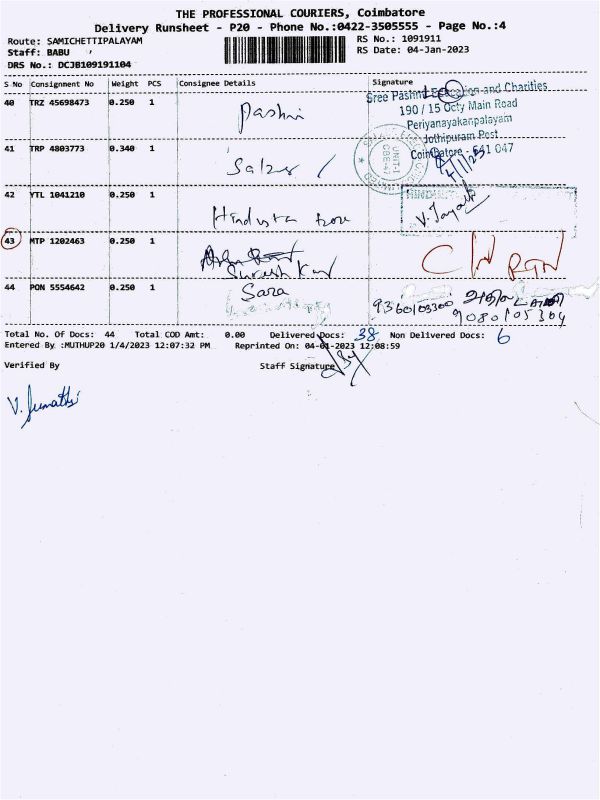 THE PROFESSIONAL COURIERS, Coimbatore
Delivery Runsheet - P20 - Phone No.:0422-3505555 - Page No.:4
Route: SAMICHETTIPALAYAM
RS No.: 1091911
Staff: BABU
RS Date: 04-Jan-2023
DRS No.: DCJB109191104
S No Consignment No Weight PCS Consignee Details Signature
40 TRZ 45698473 0.250 1
Sree Pashmi Education and Charities
190 / 15 Octy Main Road
Periyanayakanpalayam
Jothipuram Post
Coimbatore - 641 047
41 TRP 4803773 0.340 1 Salzer
UNIT-I
CBE-47
42 YTL 1041210 0.250 1 Hindusta
V. Jayanthi
43 MTP 1202463 0.250 1 Suresh Kumar
44 PON 5554642 0.250 1 Sara
9360103300
9080105304
Total No. Of Docs: 44 Total COD Amt: 0.00 Delivered Docs: 38 Non Delivered Docs: 6
Entered By :MUTHUP20 1/4/2023 12:07:32 PM Reprinted On: 04-01-2023 12:08:59
Verified By Staff Signature
V. Sumathi